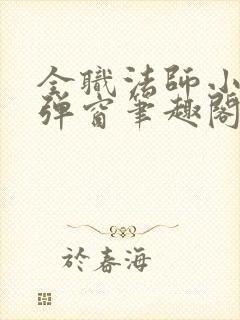 全職法師小
彈窗筆趣閣
於春海